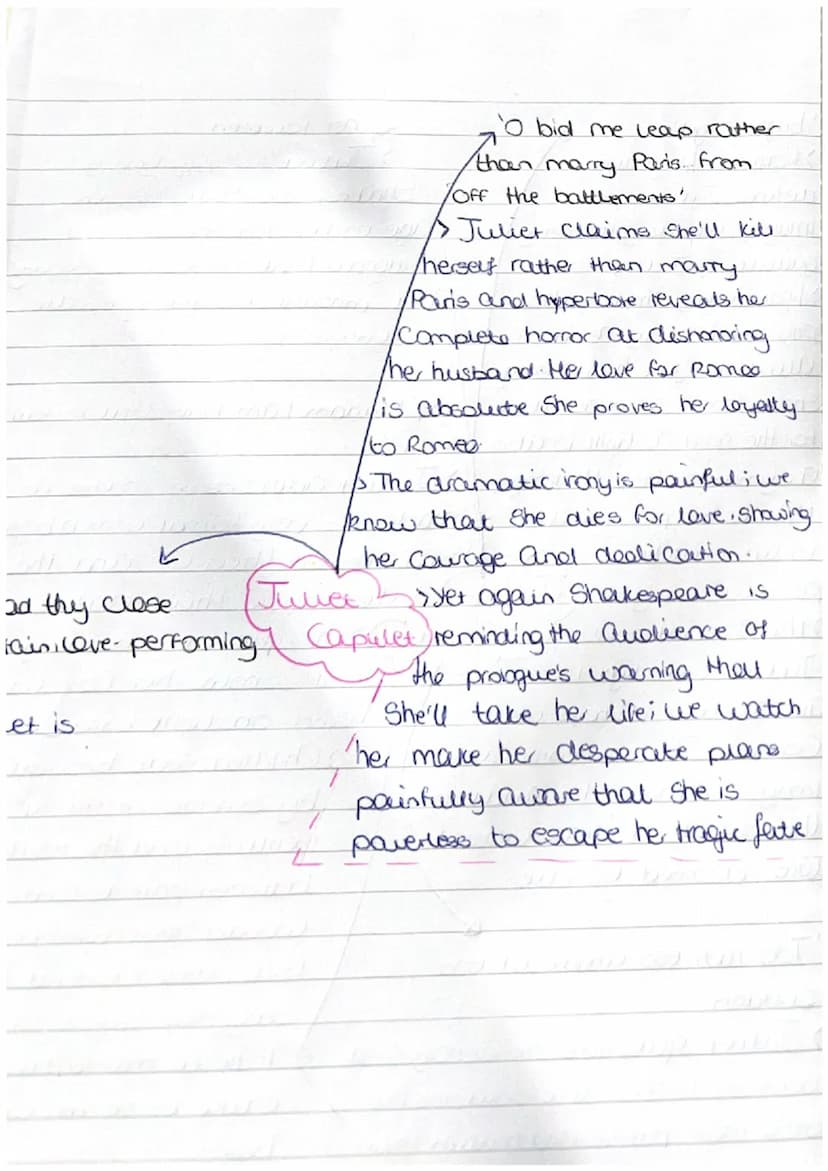 'O bid me leap rather
than marry Paris from
off the battlements'
> Juliet claims she'll kill
herself rather than marry
Paris and hyperbole reveals her
complete horror at dishonoring
her husband. Her love for Romeo
is absolute she proves her loyalty
to Romeo.
> The dramatic irony is painful; we
know that she dies for love, showing
her courage and dedication.
> Yet again Shakespeare is
reminding the audience of
the prologue's warning that
She'll take her life; we watch
her make her desperate plans
painfully aware that she is
powerless to escape her tragic fate
Juliet
Capulet
ad thy close
tain, love-performing
et is